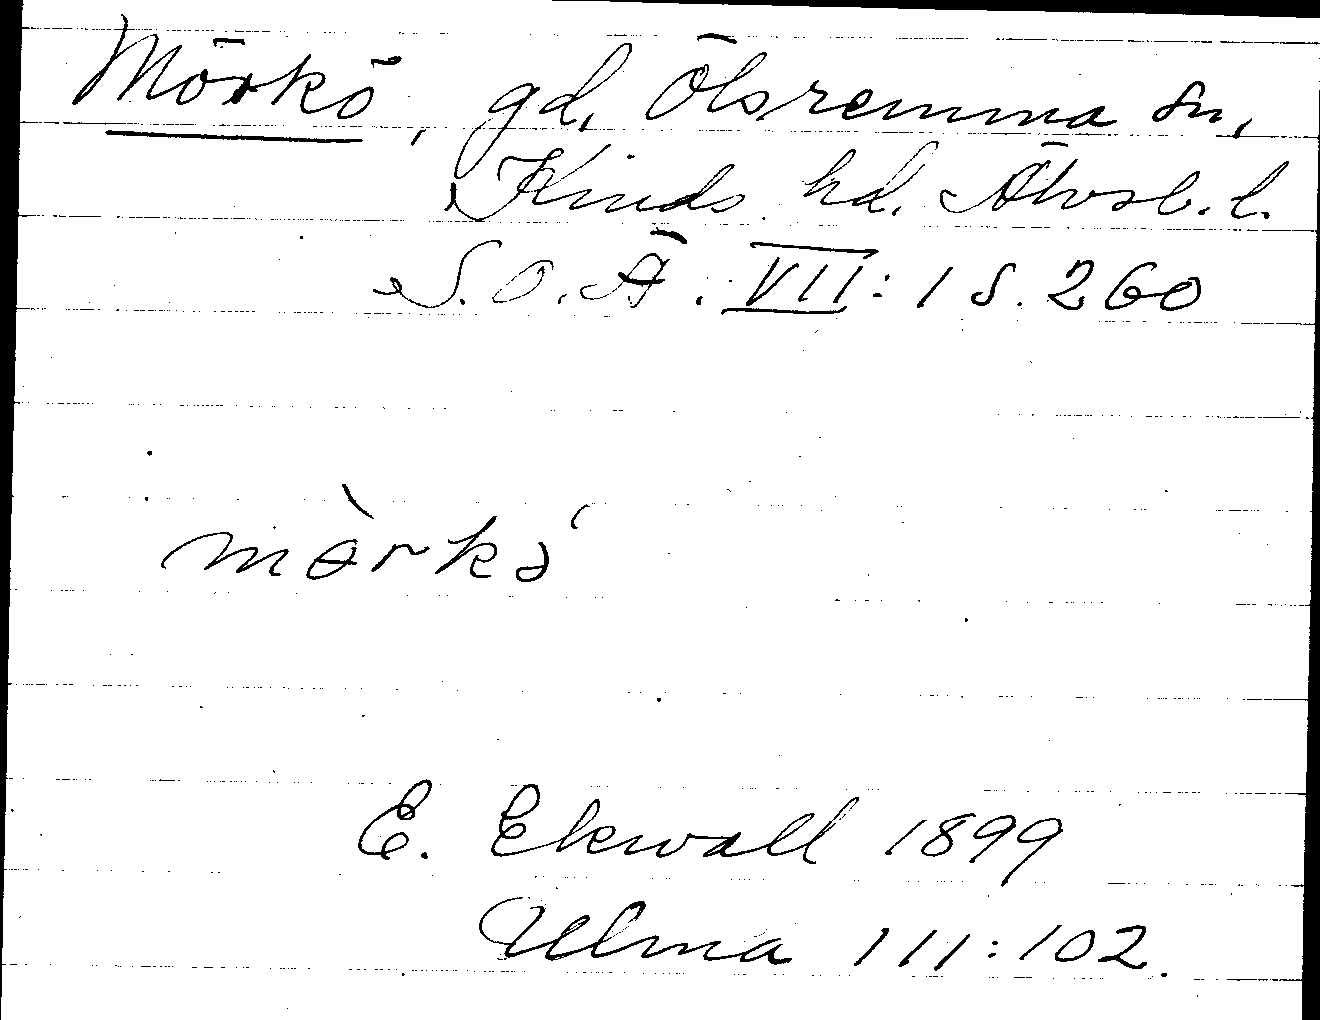 Mörkö, gd, Ölsremma sn,
Kinds hd. Älvsb. l.
S. O. Ä. VII: 1 S. 260
mə̀rkə́
E. Ekwall 1899
Ulma 111:102.